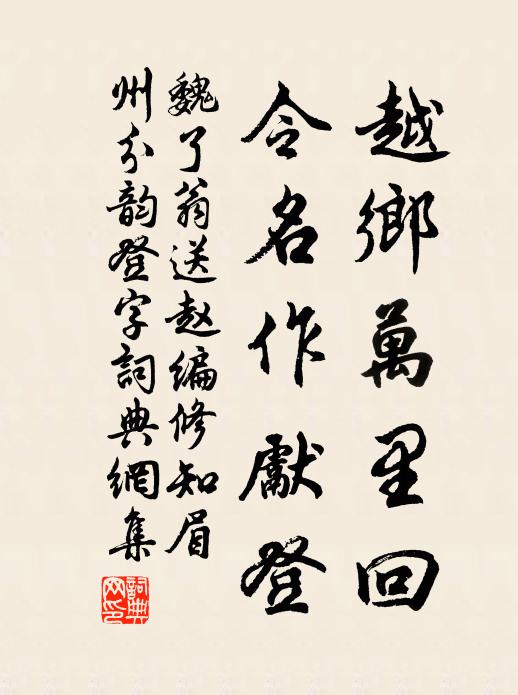 越鄉萬里回
令名作獻登
魏了翁送赵编修知眉
州分韵登字詞典網集
詞典网印